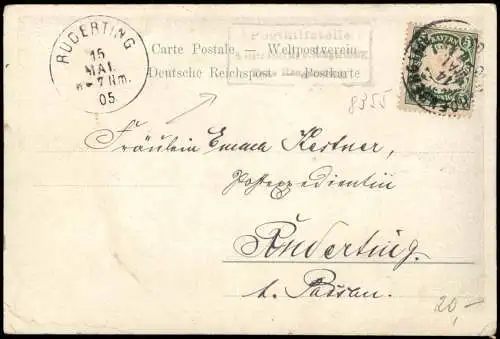 RUDERTING
15
MAI.
6-7 Nm.
05
Posthilfstelle
Carte Postale — Weltpostverein
Deutsche Reichspost Postkarte
8355
BAYERN
Fräulein Emma Kestner,
Postexpedientin
Ruderting
b. Passau.
20,-